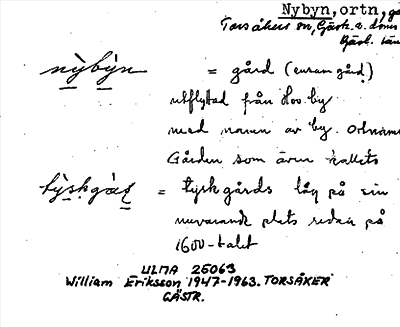 Nybyn, ortn,
Torsåkers sn, Gästr.
Gävl. län
nỳbỳn = gård (ensam gård)
utflyttad från Hos. by
med namn av by. Ortnamn
Gården som även kallats
= tyskgårds låg på sin
nuvarande plats redan på
1600-talet
ULMA 25063
William Eriksson 1947-1963. TORSÅKER
GÄSTR.